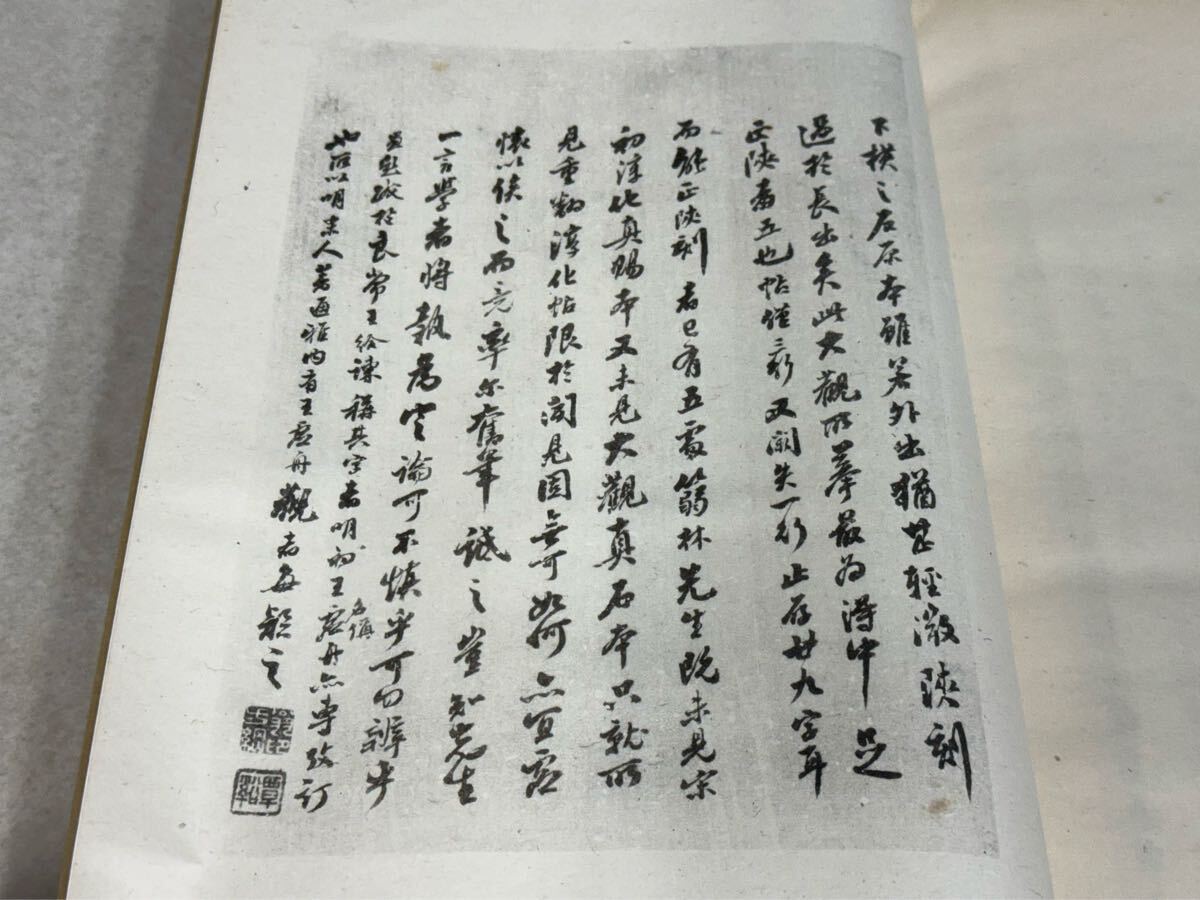 下橫之右原本雖署外出猶甚輕澂陝刻
過於長出矣此大觀所摹最為得中足
正陝者五也帖僅三行又闕失一行止存廿九字耳
而能正陝刻者已有五處蒻林先生既未見宋
初淳化真賜本又未見大觀真石本只就所
見重翻淳化帖限於聞見固無可如何亦宜虛
懷以俟之而竟率尔奮筆詆之豈知先生
一言學者將執為定論可不慎乎可勿辨乎
良常王給諫稱其字者明初王虛舟亦專攷訂
名偁
也所以明末人著通雅內有王虛舟觀者每疑之
覃谿